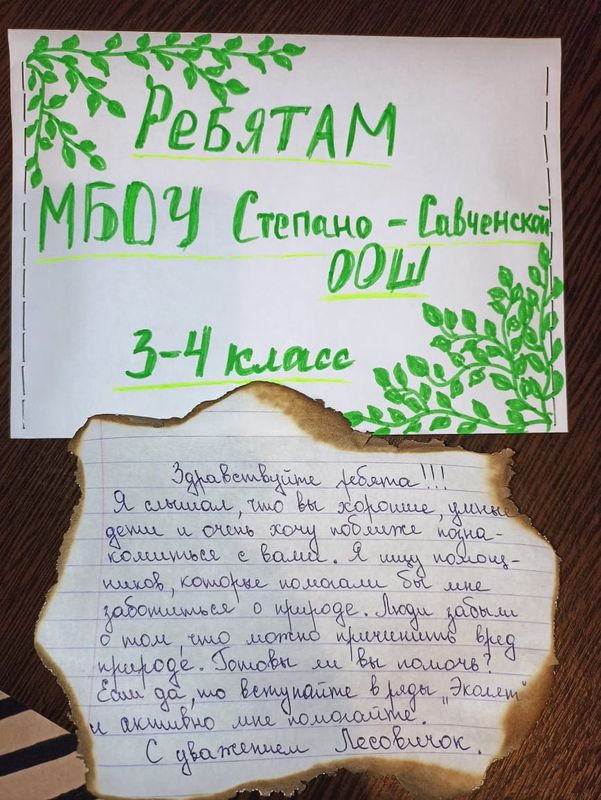 Ребятам
МБОУ Степано - Савченской
ООШ
3-4 класс
Здравствуйте ребята!!!
Я слышал, что вы хорошие, умные
дети и очень хочу поближе позна-
комиться с вами. Я ищу помощ-
ников, которые помогали бы мне
заботиться о природе. Люди забыли
о том, что можно причинить вред
природе. Готовы ли вы помочь?
Если да, то вступайте в ряды "Эколят"
и активно мне помогайте.
С уважением Лесовичок.